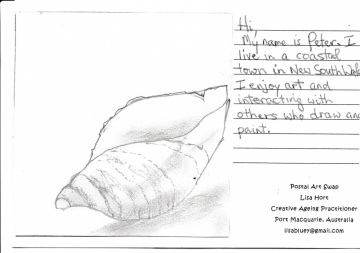 Hi,
My name is Peter. I
live in a coastal
town in New South Wales
I enjoy art and
interacting with
others who draw and
paint.
Postal Art Swap
Lisa Hort
Creative Ageing Practitioner
Port Macquarie, Australia
lisabluey@gmail.com